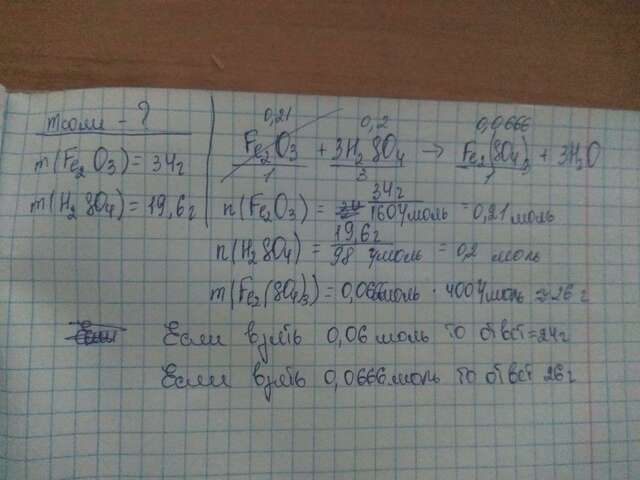 mсоли - ?
m(Fe₂O₃) = 34г
m(H₂SO₄) = 19,6г
0,21 0,2 0,0666
Fe₂O₃ + 3H₂SO₄ → Fe₂(SO₄)₃ + 3H₂O
1 3 1
n(Fe₂O₃) = 34г / 160г/моль = 0,21 моль
n(H₂SO₄) = 19,6г / 98 г/моль = 0,2 моль
m(Fe₂(SO₄)₃) = 0,0666моль · 400г/моль = 26 г
Если взять 0,06 моль то ответ = 24г
Если взять 0,0666моль то ответ 26г